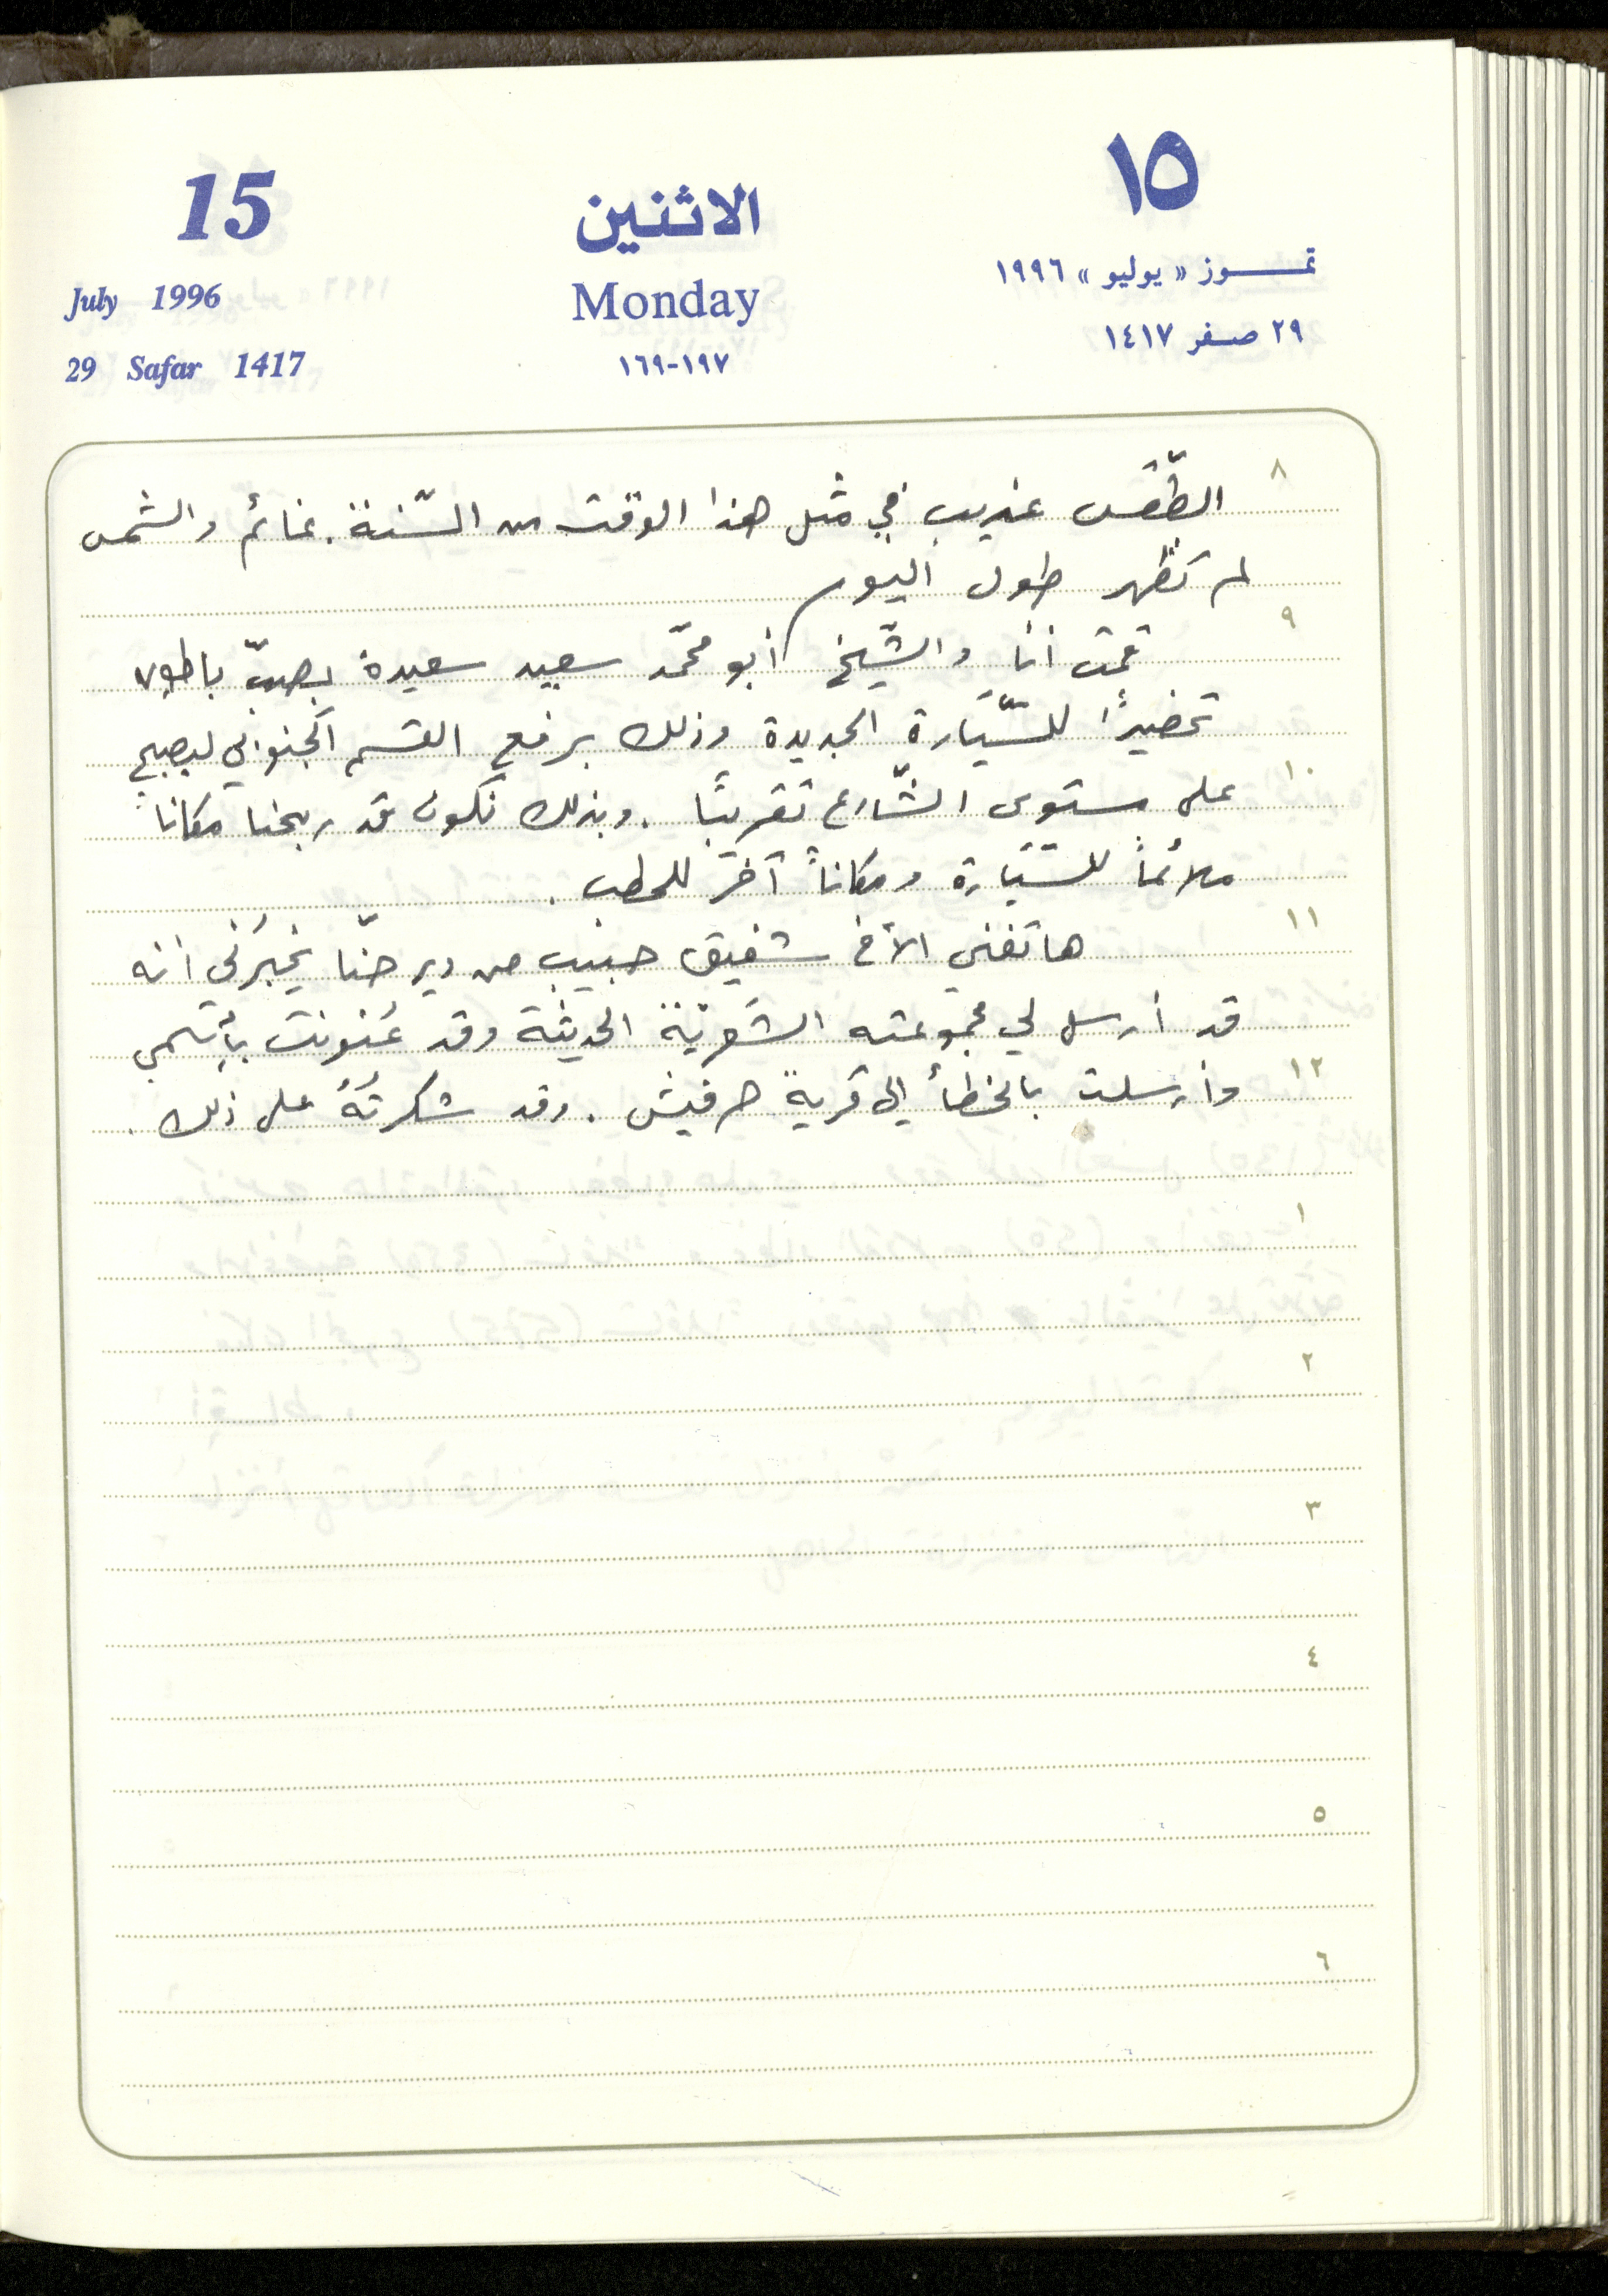 15
الاثنين
١٥
July 1996
Monday
تمـــوز « يوليو » ١٩٩٦
29 Safar 1417
١٩٧-١٦٩
٢٩ صفر ١٤١٧
٨
الطّقس غريب في مثل هذا الوقت من السّنة. غائم والشمس
لم تظهر طول اليوم
٩
قمت أنا والشّيخ أبو محمّد سعيد سعيدة بصبّ باطون
تحضيرًا للسّيّارة الجديدة وذلك برفع القسم الجنوبي ليصبح
١٠
على مستوى الشّارع تقريبًا. وبذلك نكون قد ربحنا مكاناً
ملائماً للسّيّارة ومكاناً آخر للحطب.
١١
هاتفني الأخ شفيق حبيب من دير حنّا يخبرني انه
قد أرسل لي مجموعته الشعريّة الحديثة وقد عُنونت بأسمي
١٢
وأرسلت بالخطأ إلى قرية حرفيش. وقد شكرتُهُ على ذلك.
١
٢
٣
٤
٥
٦